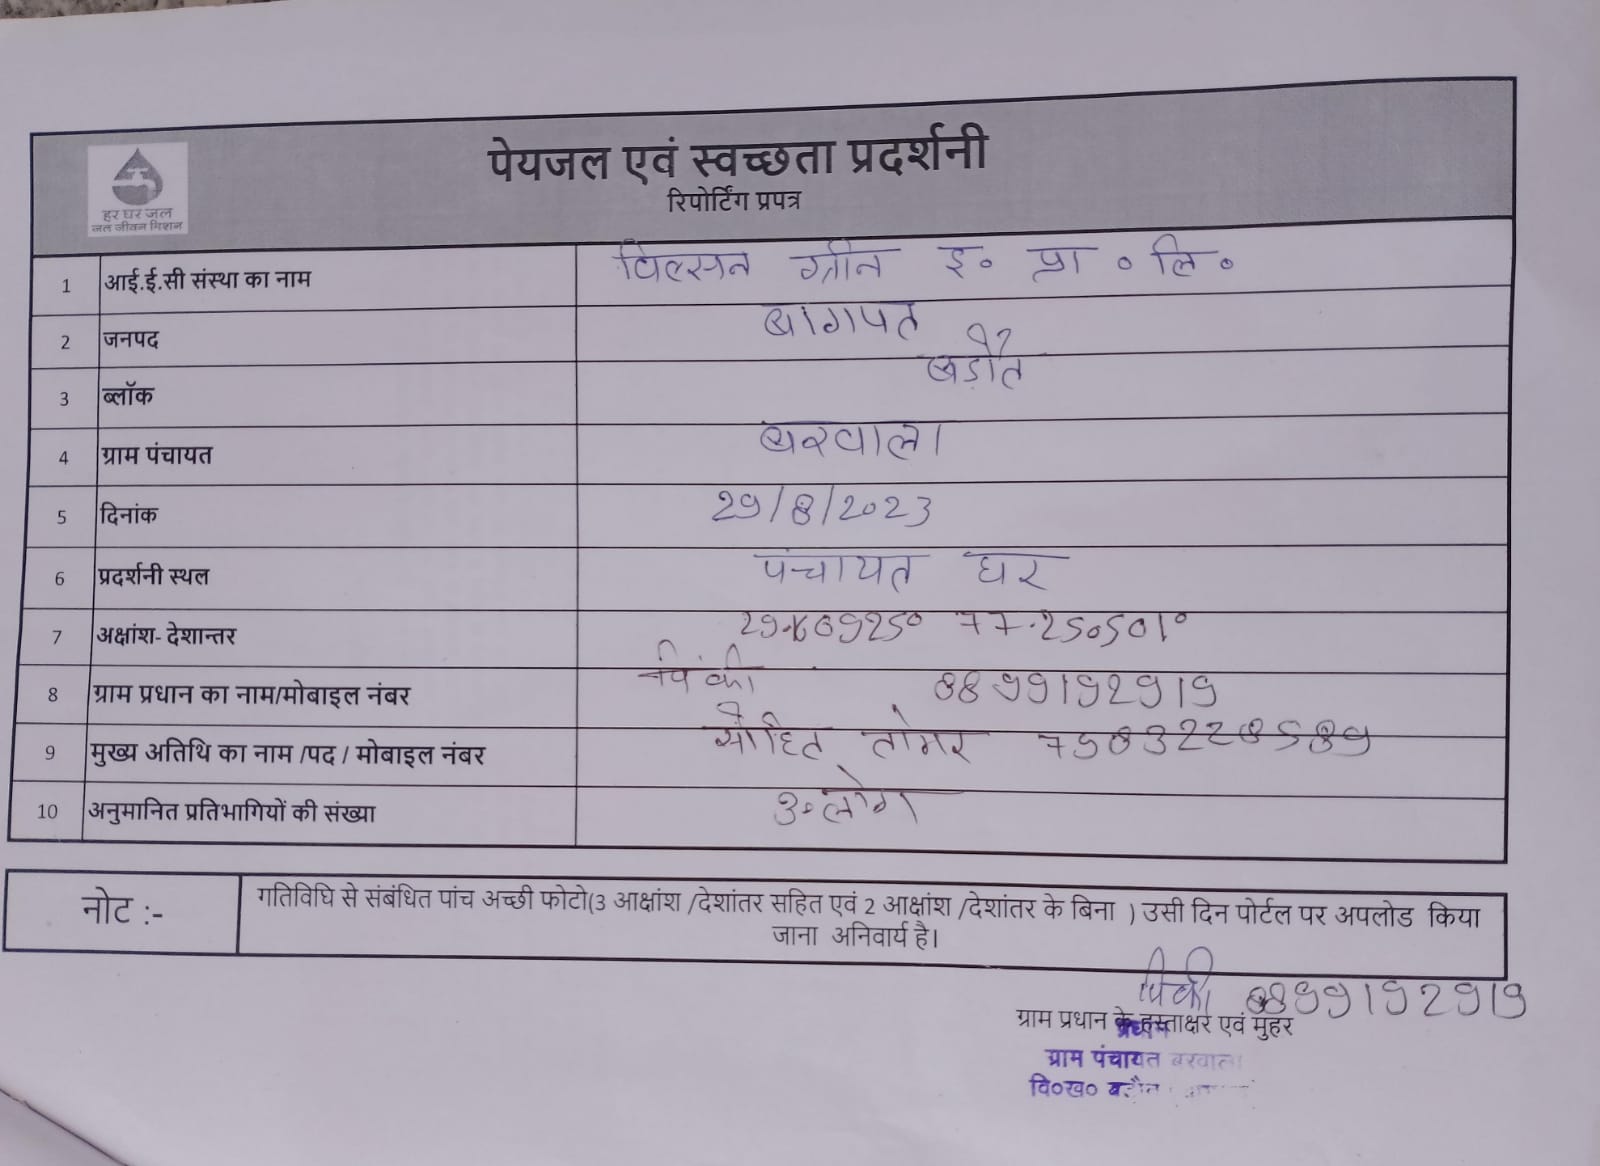 पेयजल एवं स्वच्छता प्रदर्शनी
रिपोर्टिंग प्रपत्र
हर घर जल
जल जीवन मिशन
1 आई.ई.सी संस्था का नाम विल्सन ग्रीन इ० प्रा० लि०
2 जनपद बागपत
3 ब्लॉक बड़ौत
4 ग्राम पंचायत बरवाला
5 दिनांक 29/8/2023
6 प्रदर्शनी स्थल पंचायत घर
7 अक्षांश- देशान्तर
8 ग्राम प्रधान का नाम/मोबाइल नंबर पिंकी 8899192919
9 मुख्य अतिथि का नाम /पद / मोबाइल नंबर तोमर
10 अनुमानित प्रतिभागियों की संख्या 30 लोग
नोट :- गतिविधि से संबंधित पांच अच्छी फोटो(3 आक्षांश /देशांतर सहित एवं 2 आक्षांश /देशांतर के बिना ) उसी दिन पोर्टल पर अपलोड किया
जाना अनिवार्य है।
पिंकी 8899192919
ग्राम प्रधान के हस्ताक्षर एवं मुहर
प्रधान
ग्राम पंचायत बरवाला
वि०ख० बड़ौत